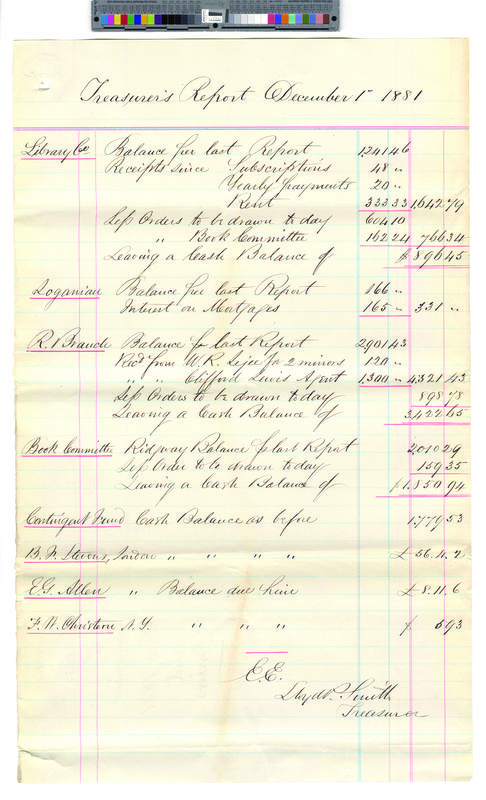 Treasurer's Report December 1st 1881
Library Co Balance per last Report 1,241 46
Receipts since Subscriptions 48 "
Yearly payments 20 "
Rent 333 33 1,642 79
Less Orders to be drawn to day 604 10
" Book Committee 162 24 766 34
Leaving a Cash Balance of $ 896 45
Loganian Balance per last Report 166 "
Interest on Mortgages 165 " 331 "
R. Branch Balance p last Report 2,901 43
Rec'd from W. R. for 2 mirrors 120 "
" " Clifford Lewis Agent 1,300 " 4,321 43
Less Orders to be drawn to day 898 78
Leaving a Cash Balance of 3,422 65
Book Committee Ridgway Balance p last Report 2,010 29
Less Order to be drawn to day 159 35
Leaving a Cash Balance of $ 1,850 94
Contingent Fund Cash Balance as before 1,779 53
B. F. Stevens, London " " " " £ 56.4.2
E. G. Allen " Balance due him £ 8.11.6
F. W. Christern N.Y. " " " $ 5 93
E.E.
Lloyd P. Smith
Treasurer